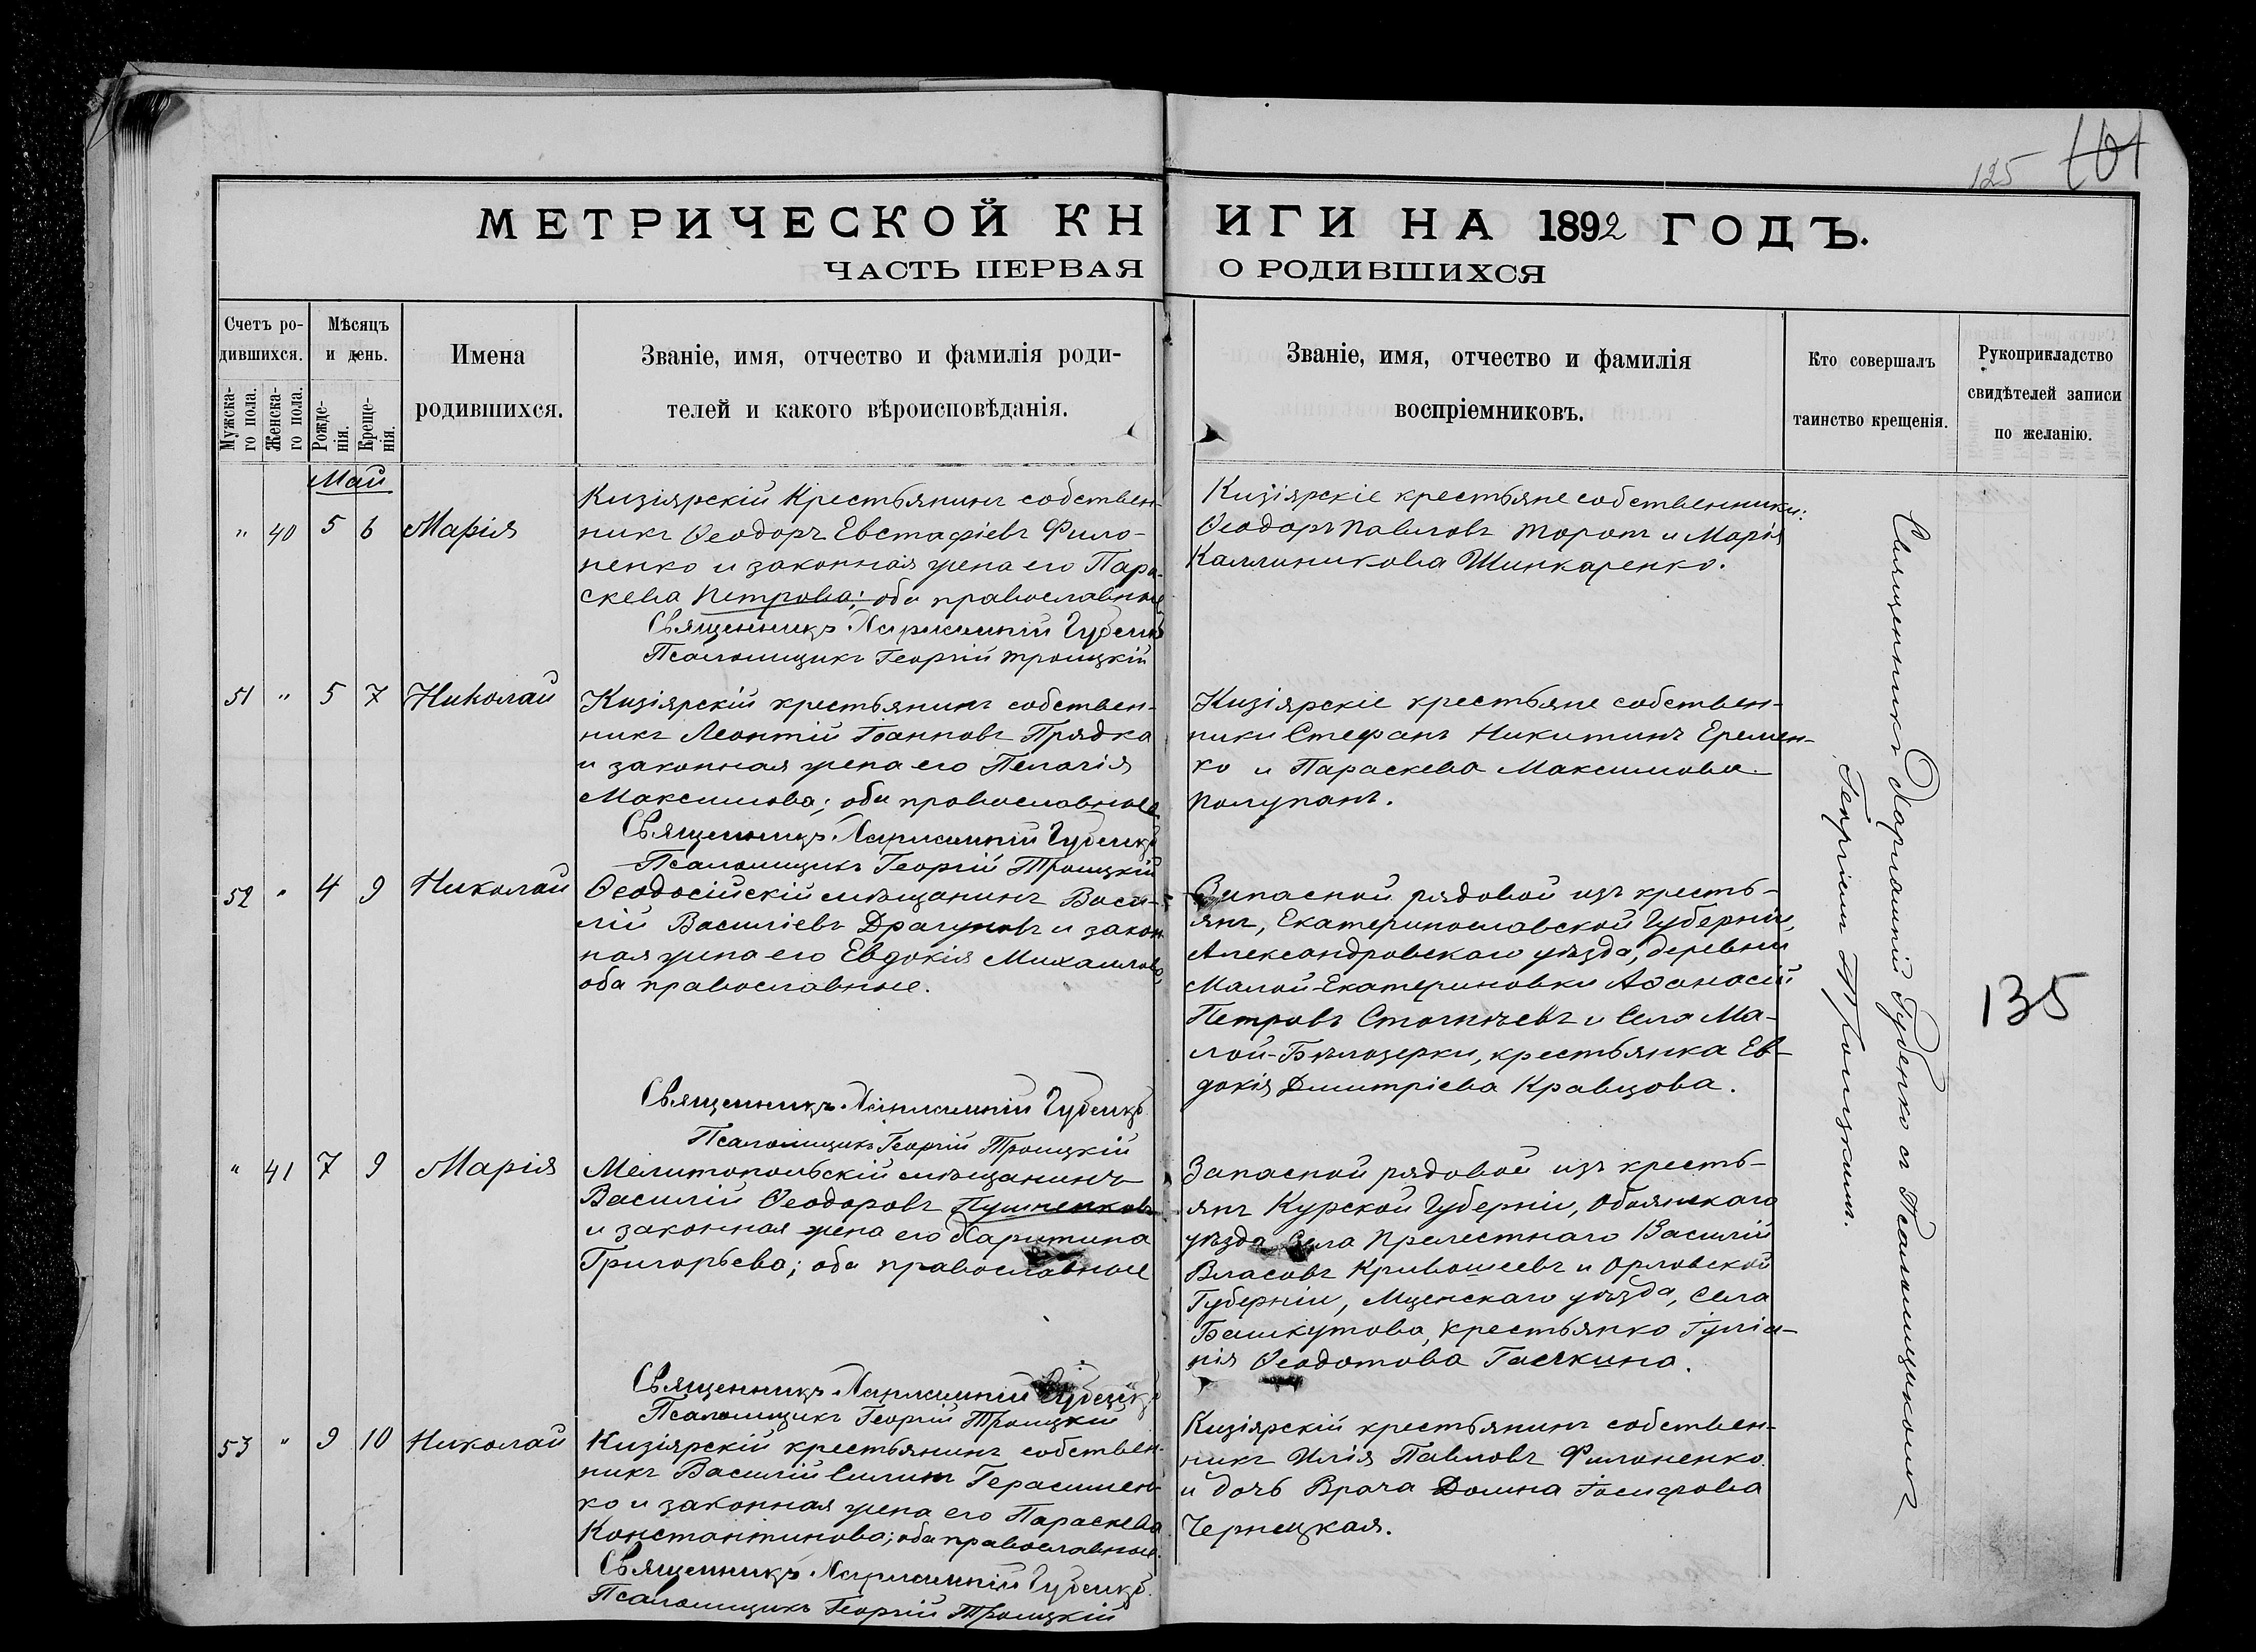 125 101
МЕТРИЧЕСКОЙ КНИГИ НА 1892 ГОДЪ.
ЧАСТЬ ПЕРВАЯ О РОДИВШИХСЯ
Счетъ ро-
дившихся.
Мужска-
го пола.
Женска-
го пола.
Мѣсяцъ
и день.
Рожде-
нія.
Креще-
нія.
Имена
родившихся.
Званіе, имя, отчество и фамилія роди-
телей и какого вѣроисповѣданія.
Званіе, имя, отчество и фамилія
воспріемниковъ.
Кто совершалъ
таинство крещенія.
Рукоприкладство
свидѣтелей записи
по желанію.
Май
" 40 5 6 Марія
Кизіярскій Крестьянинъ собствен-
никъ Ѳеодоръ Евстафіевъ Фило-
ненко и законная жена его Пара-
скева Петрова; оба православные
Священникъ Харлампій Губенко
Псаломщикъ Георгій Троицкій
Кизіярскіе крестьяне собственники:
Ѳеодоръ Павловъ Торопъ и Марія
Каллиникова Шинкаренко.
51 " 5 7 Николай
Кизіярскій крестьянинъ собствен-
никъ Леонтій Іоанновъ Прядка
и законная жена его Пелагія
Максимова; оба православные
Священникъ Харлампій Губенко
Псаломщикъ Георгій Троицкій
Кизіярскіе крестьяне собствен-
ники Стефанъ Никитинъ Еремен-
ко и Параскева Максимова
Полупанъ.
52 " 4 9 Николай
Ѳеодосійскій мѣщанинъ Васи-
лій Василіевъ Драгуновъ и закон
ная жена его Евдокія Михаилова,
оба православные.
Священникъ Харлампій Губенко
Псаломщикъ Георгій Троицкій
Запасной рядовой изъ кресть-
янъ, Екатеринославской Губерніи,
Александровскаго уѣзда, деревни
Малой-Екатериновки Аѳанасій
Петровъ и Села Ма-
лой-Бѣлозерки, крестьянка Ев-
докія Димитріева Кравцова.
" 41 7 9 Марія
Мелитопольскій мѣщанинъ
Василій Ѳеодоровъ Пушненковъ
и законная жена его Харитина
Григорьева; оба православные
Священникъ Харлампій Губенко
Псаломщикъ Георгій Троицкій
Запасной рядовой изъ кресть-
янъ Курской Губерніи, Обоянскаго
уѣзда Села Прелестнаго Василій
Власовъ Кривошеевъ и Орловской
Губерніи, Мценскаго уѣзда, Села
Башкутова, крестьянка Іуліа-
нія Ѳеодотова
53 " 9 10 Николай
Кизіярскій крестьянинъ собствен-
никъ Василій Силинъ Герасимен-
ко и законная жена его Параскева
Константинова; оба православные.
Священникъ Харлампій Губенко
Псаломщикъ Георгій Троицкій
Кизіярскій крестьянинъ собствен-
никъ Илія Павловъ Филоненко
и дочь Врача Домна Іосифова
Чернецкая.
Священникъ Харлампій Губенко съ Псаломщикомъ
Георгіемъ Троицкимъ.
135